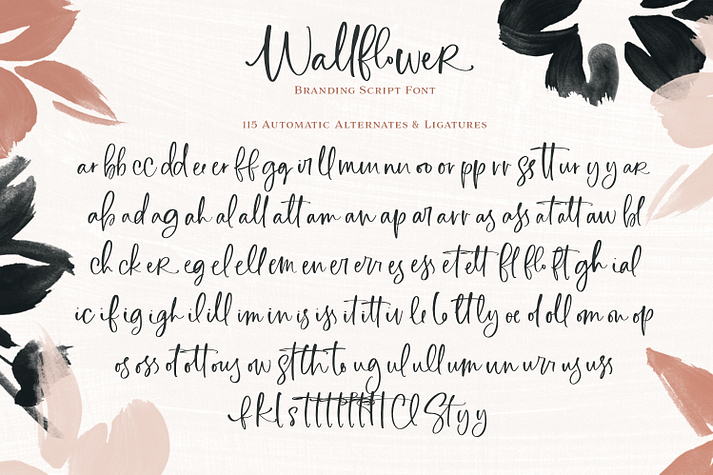 Wallflower
Branding Script Font
115 Automatic Alternates & Ligatures
ar bb cc dd ee er ff gg ir ll mm nn oo or pp rr ss tt ur y y ar
ab ad ag ah al all att am an ap ar arr as ass at att aw bl
ch ck er eg el ell em en er err es ess et ett fl flo ft gh ial
ic if ig igh il ill im in is iss it itt iv le lo ttly oe ol oll om on op
os oss ot ott ous ow st th to ug ul ull um un urr us uss
f k l s t t t t t t t t Cl St y y